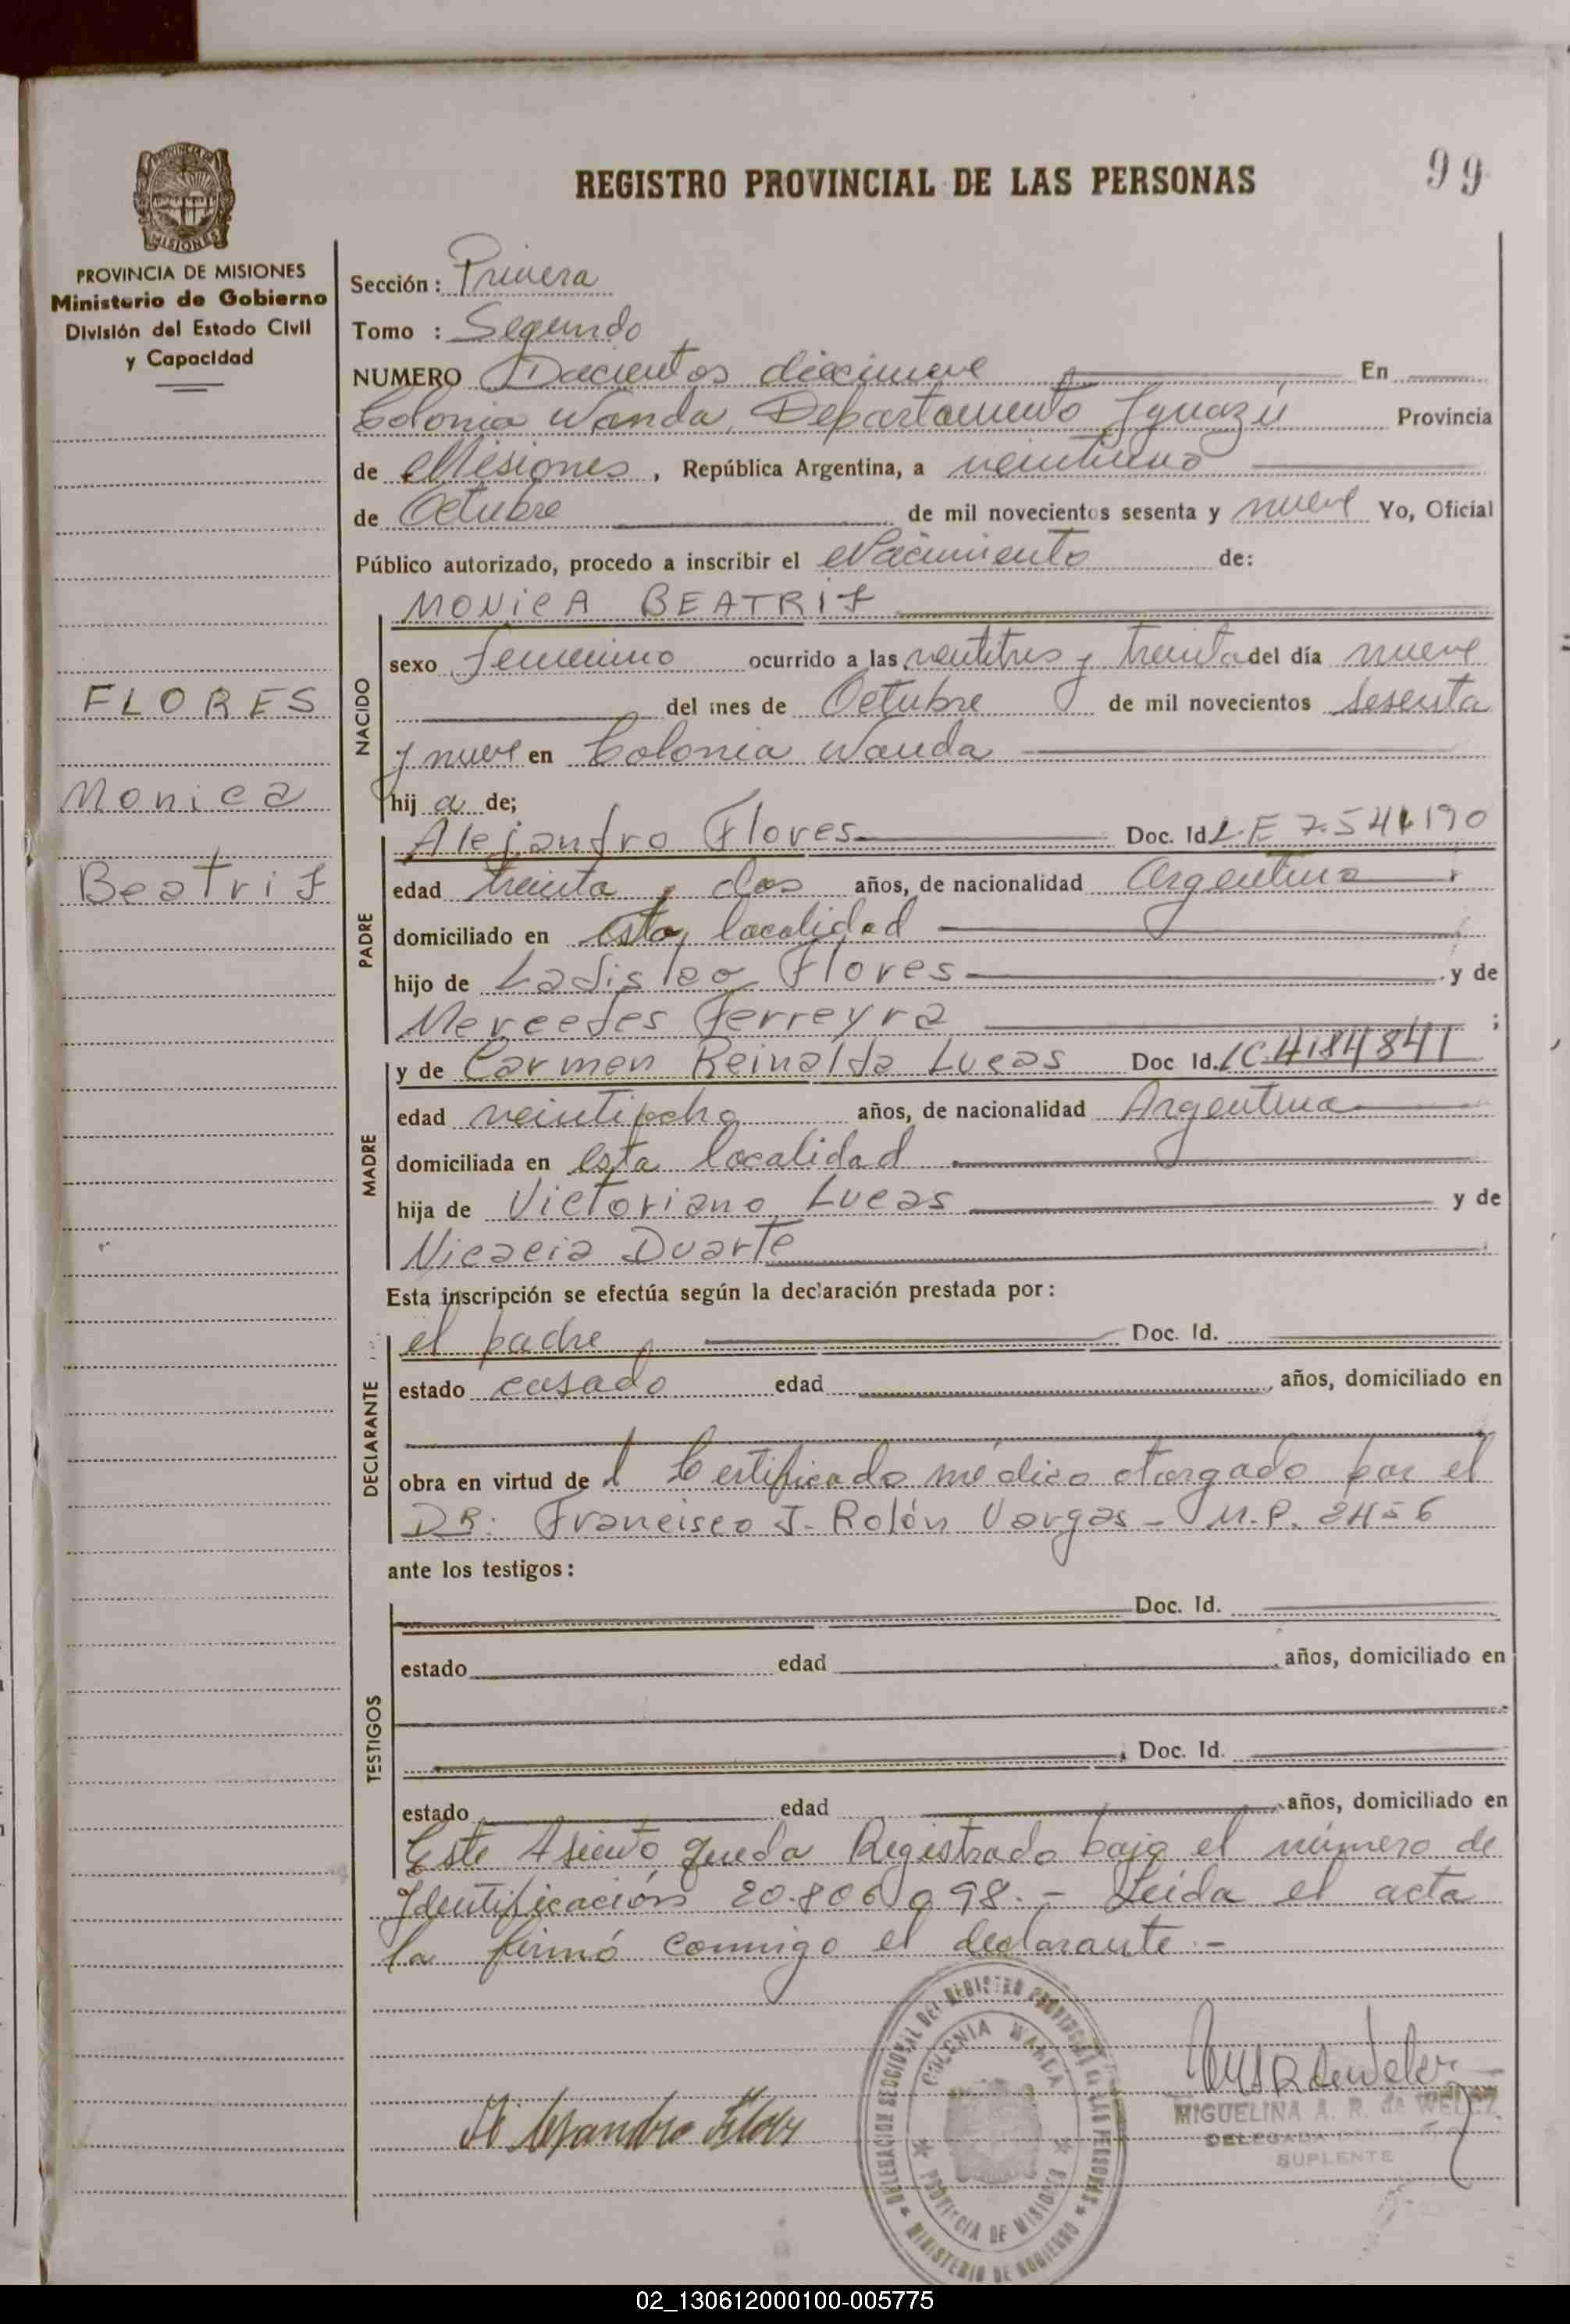 REGISTRO PROVINCIAL DE LAS PERSONAS
99
MISIONES
PROVINCIA DE MISIONES
Ministerio de Gobierno
División del Estado Civil
y Capacidad
FLORES
Monica
Beatriz
Sección: Primera
Tomo : Segundo
NUMERO Docientos diecinueve En
Colonia Wanda, Departamento Iguazú Provincia
de Misiones, República Argentina, a veintiuno
de Octubre de mil novecientos sesenta y nueve Yo, Oficial
Público autorizado, procedo a inscribir el Nacimiento de:
NACIDO
MONICA BEATRIZ
sexo femenino ocurrido a las ventitres y treinta del día nueve
del mes de Octubre de mil novecientos sesenta
y nueve en Colonia Wanda
hij a de;
PADRE
Alejandro Flores Doc. Id L.E 7.541.190
edad treinta y dos años, de nacionalidad Argentina
domiciliado en esta localidad
hijo de Ladislao Flores y de
Mercedes Ferreyra ;
MADRE
y de Carmen Reinalda Lucas Doc Id. LC. 4184841
edad veintiocho años, de nacionalidad Argentina
domiciliada en esta localidad
hija de Victoriano Lucas y de
Nicacia Duarte
Esta inscripción se efectúa según la declaración prestada por:
DECLARANTE
el padre Doc. Id.
estado casado edad , años, domiciliado en
obra en virtud de l Certificado médico otorgado por el
DR. Francisco J. Rolón Vargas - M.P. 2456
ante los testigos:
TESTIGOS
Doc. Id.
estado edad , años, domiciliado en
, Doc. Id.
estado edad , años, domiciliado en
Este Asiento queda Registrado bajo el número de
Identificación 20.806.098.- Leida el acta
la firmó conmigo el declarante.-
Alejandro Flores
DELEGACION SECCIONAL DEL REGISTRO PROVINCIAL DE LAS PERSONAS
COLONIA WANDA
PROVINCIA DE MISIONES
MINISTERIO DE GOBIERNO
MIGUELINA A. R. de WELEZ
DELEGADA
SUPLENTE
02_130612000100-005775